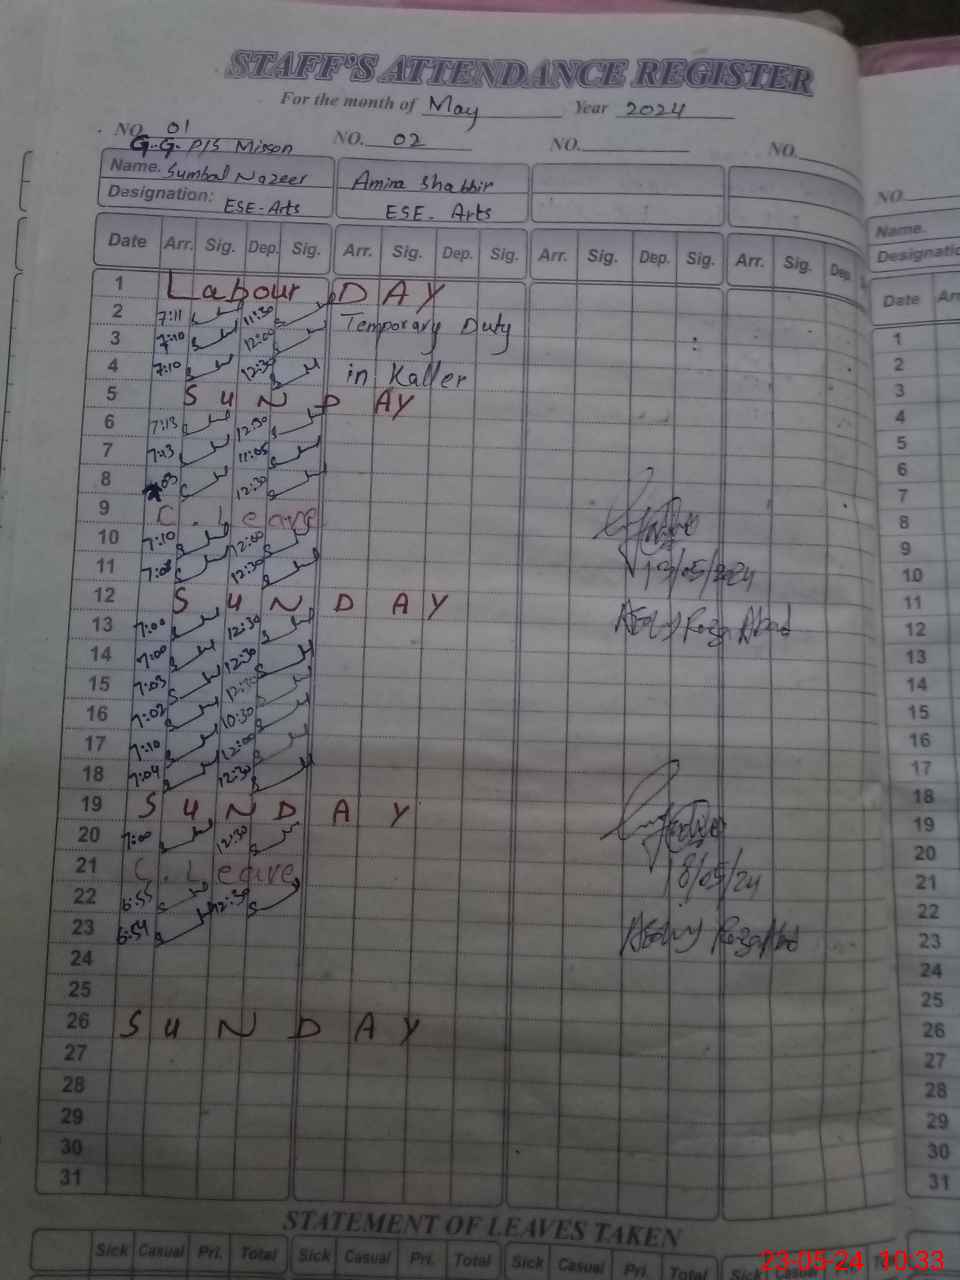 STAFF'S ATTENDANCE REGISTER
For the month of May Year 2024
NO. 01 NO. 02 NO. NO.
G.G. P/S Misson
Name. Sumbal Nazeer Amina Shabbir
Designation: ESE-Arts ESE-Arts
Date Arr. Sig. Dep. Sig. Arr. Sig. Dep. Sig. Arr. Sig. Dep. Sig. Arr. Sig. Dep
1 Labour DAY
2 7:11 11:30 Temporary Duty
3 7:10 12:00
4 7:10 12:30 in Kaller
5 SUNDAY
6 7:13 12:30
7 7:13 11:05
8 12:30
9 C. Leave
10 7:10 12:00
11 7:08 12:30
13/05/2024
12 SUNDAY
13 7:00 12:30
14 7:00 12:30
15 7:03 12:30
16 7:02 10:30
17 7:10 12:00
18 7:04 12:30
19 SUNDAY
20 7:00 12:30
21 C. Leave
18/05/24
22 6:55 12:30
23 6:54
24
25
26 SUNDAY
27
28
29
30
31
STATEMENT OF LEAVES TAKEN
Sick Casual Pri. Total Sick Casual Pri. Total Sick Casual Pri. Total Sick Casual
NO.
Name.
Designatio
Date Arr
1
2
3
4
5
6
7
8
9
10
11
12
13
14
15
16
17
18
19
20
21
22
23
24
25
26
27
28
29
30
31
23-05-24 10:33